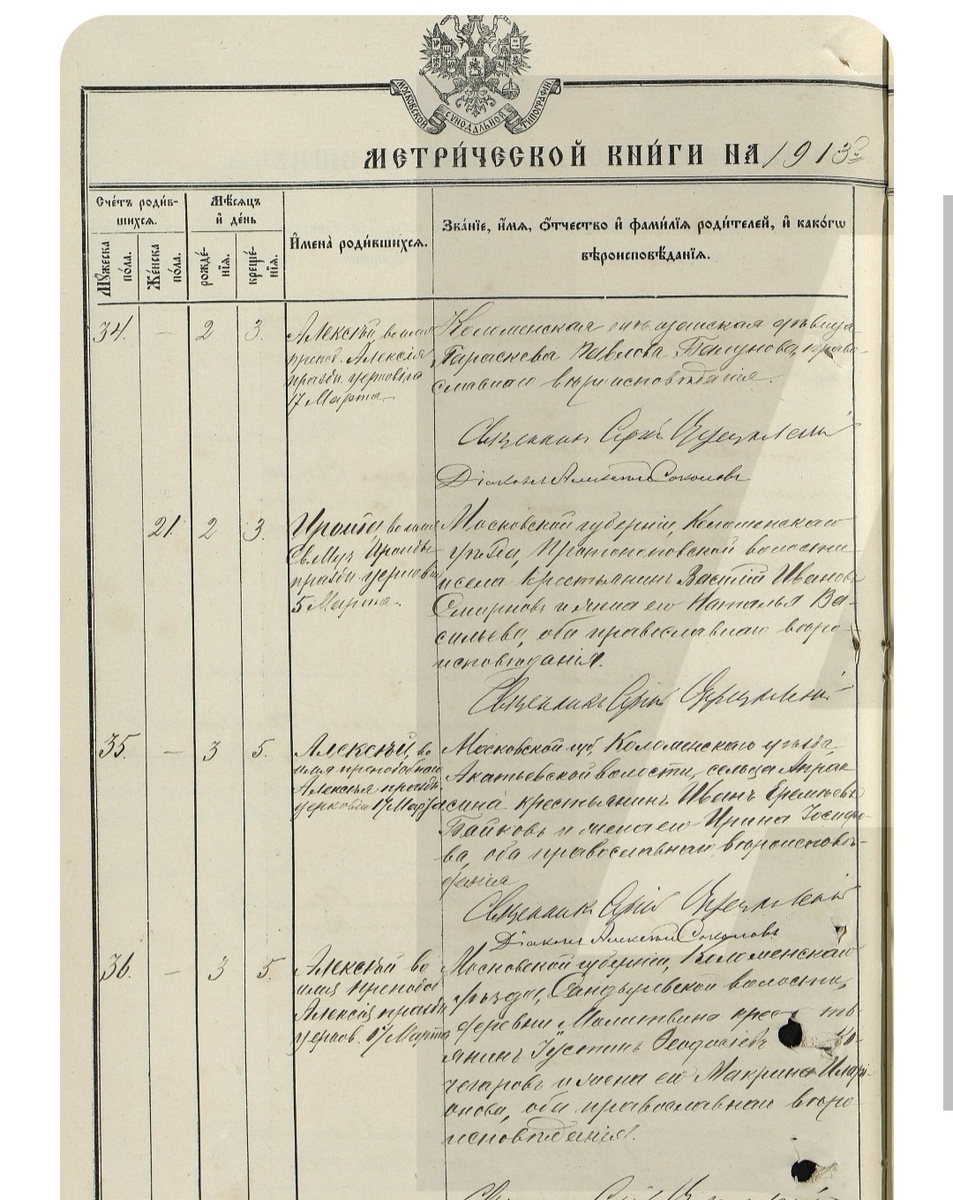 МОСКОВСКОЙ СУНОДАЛЬНОЙ ТИПОГРАФІИ
МЕТРИ́ЧЕСКОЙ КНИ́ГИ НА 1913
Сче́тъ роди́в-
шихся.
Мѣ́сяцъ
и҆ де́нь
Му́жеска
по́ла.
Же́нска
по́ла.
рожде́-
нїя.
креще́-
нїя.
И҆мена̀ роди́вшихся.
Зва́нїе, и҆́мя, ѻ҆́тчество и҆ фами́лїя роди́телей, и҆ како́гѡ
вѣроисповѣ́данїя.
34. — 2 3.
Алексѣй во имя
препод. Алексія
праздн. церковію
17 Марта.
Коломенская дѣвица
Параскева Павлова православнаго вѣроисповѣданія.
Священникъ
Діаконъ Алексѣй Соколовъ
21. 2 3.
Ираида во имя
Св. Муч. Ираиды
праздн. церковію
5 Марта.
Московской губерніи, Коломенскаго
уѣзда, Протопоповской волости
и села крестьянинъ Василій Ивановъ
Смирновъ и жена его Наталья Ва-
сильева, оба православнаго вѣро-
исповѣданія.
Священникъ
35. — 3 5.
Алексѣй, во
имя преподобнаго
Алексѣя праздн.
церковію 17 Марта
Московской губ, Коломенскаго уѣзда,
Акатьевской волости, сельца Апрак-
сина крестьянинъ Иванъ Еремѣевъ
Байковъ и жена его Ирина Іосифо-
ва, оба православнаго вѣроисповѣ-
данія
Священникъ
Діаконъ Алексѣй Соколовъ
36. — 3 5.
Алексѣй во
имя препод
Алексія праздн
церков. 17 Марта
Московской губерніи, Коломенскаго
уѣзда, Сандыревской волости,
деревни Молитвина кресть-
янинъ Іустинъ Ѳеодосіевъ Ко-
чегаровъ и жена его Макрина Илари-
онова, оба православнаго вѣро-
исповѣданія.